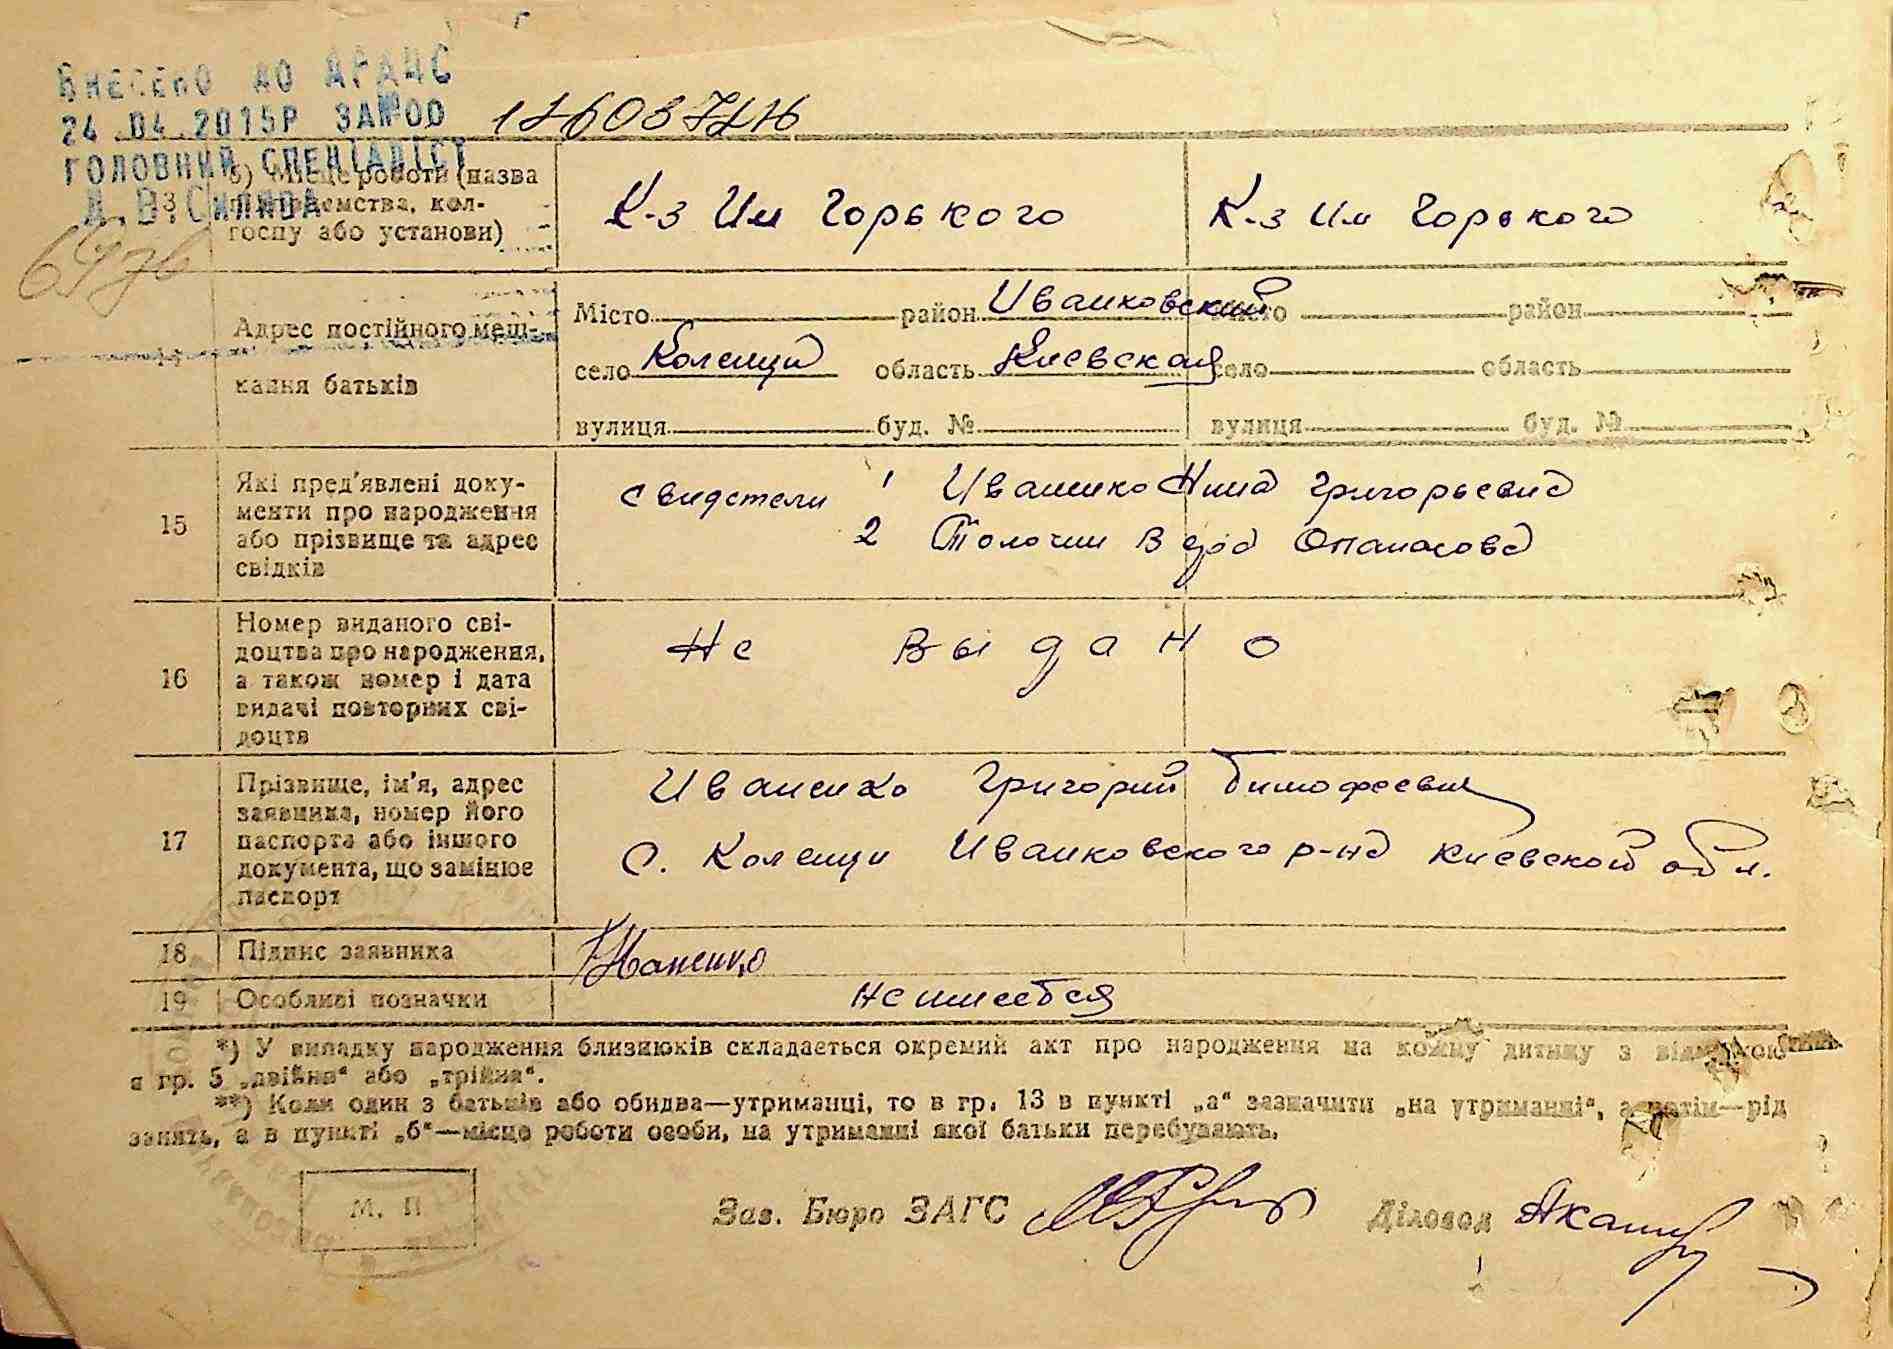 ВНЕСЕНО ДО ДРАЦС
24.04.2015Р ЗА №00 12603724
ГОЛОВНИЙ СПЕЦІАЛІСТ
б) Місце роботи (назва
підприємства, кол-
госпу або установи)
К-з Им Горького
К-з Им Горького
6976
Адрес постійного меш-
кання батьків
Місто район Иванковский
село Коленци область Киевская
вулиця буд. №
Місто район
село область
вулиця буд. №
15
Які пред'явлені доку-
менти про народження
або прізвище та адрес
свідків
свидетели 1 Иваненко Нина Григорьевна
2 Толочин
16
Номер виданого сві-
доцтва про народження,
а також номер і дата
видачі повторних сві-
доцтв
Не выдано
17
Прізвище, ім'я, адрес
заявника, номер його
паспорта або іншого
документа, що замінює
паспорт
Иваненко Григорий Тимофеевич
с. Коленци Иванковского р-на Киевской обл.
18
Підпис заявника
Иваненко
19
Особливі позначки
не имеется
*) У випадку народження близнюків складається окремий акт про народження на кожну дитину з відміткою
в гр. 5 „двійня“ або „трійня“.
**) Коли один з батьків або обидва—утриманці, то в гр. 13 в пункті „а“ зазначити „на утриманні“, а потім—рід
занять, а в пункті „б“—місце роботи особи, на утриманні якої батьки перебувають.
М. П
Зав. Бюро ЗАГС
Діловод